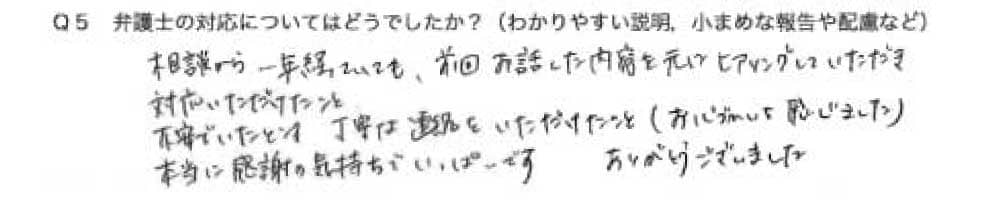 Q5 弁護士の対応についてはどうでしたか？（わかりやすい説明，小まめな報告や配慮など）
相談から一年経っていても、前回お話した内容を元にヒアリングしていただき
対応いただけたこと
不安でいたとき 丁寧な連絡をいただけたこと（お心づかいを感じました）
本当に感謝の気持ちでいっぱいです ありがとうございました